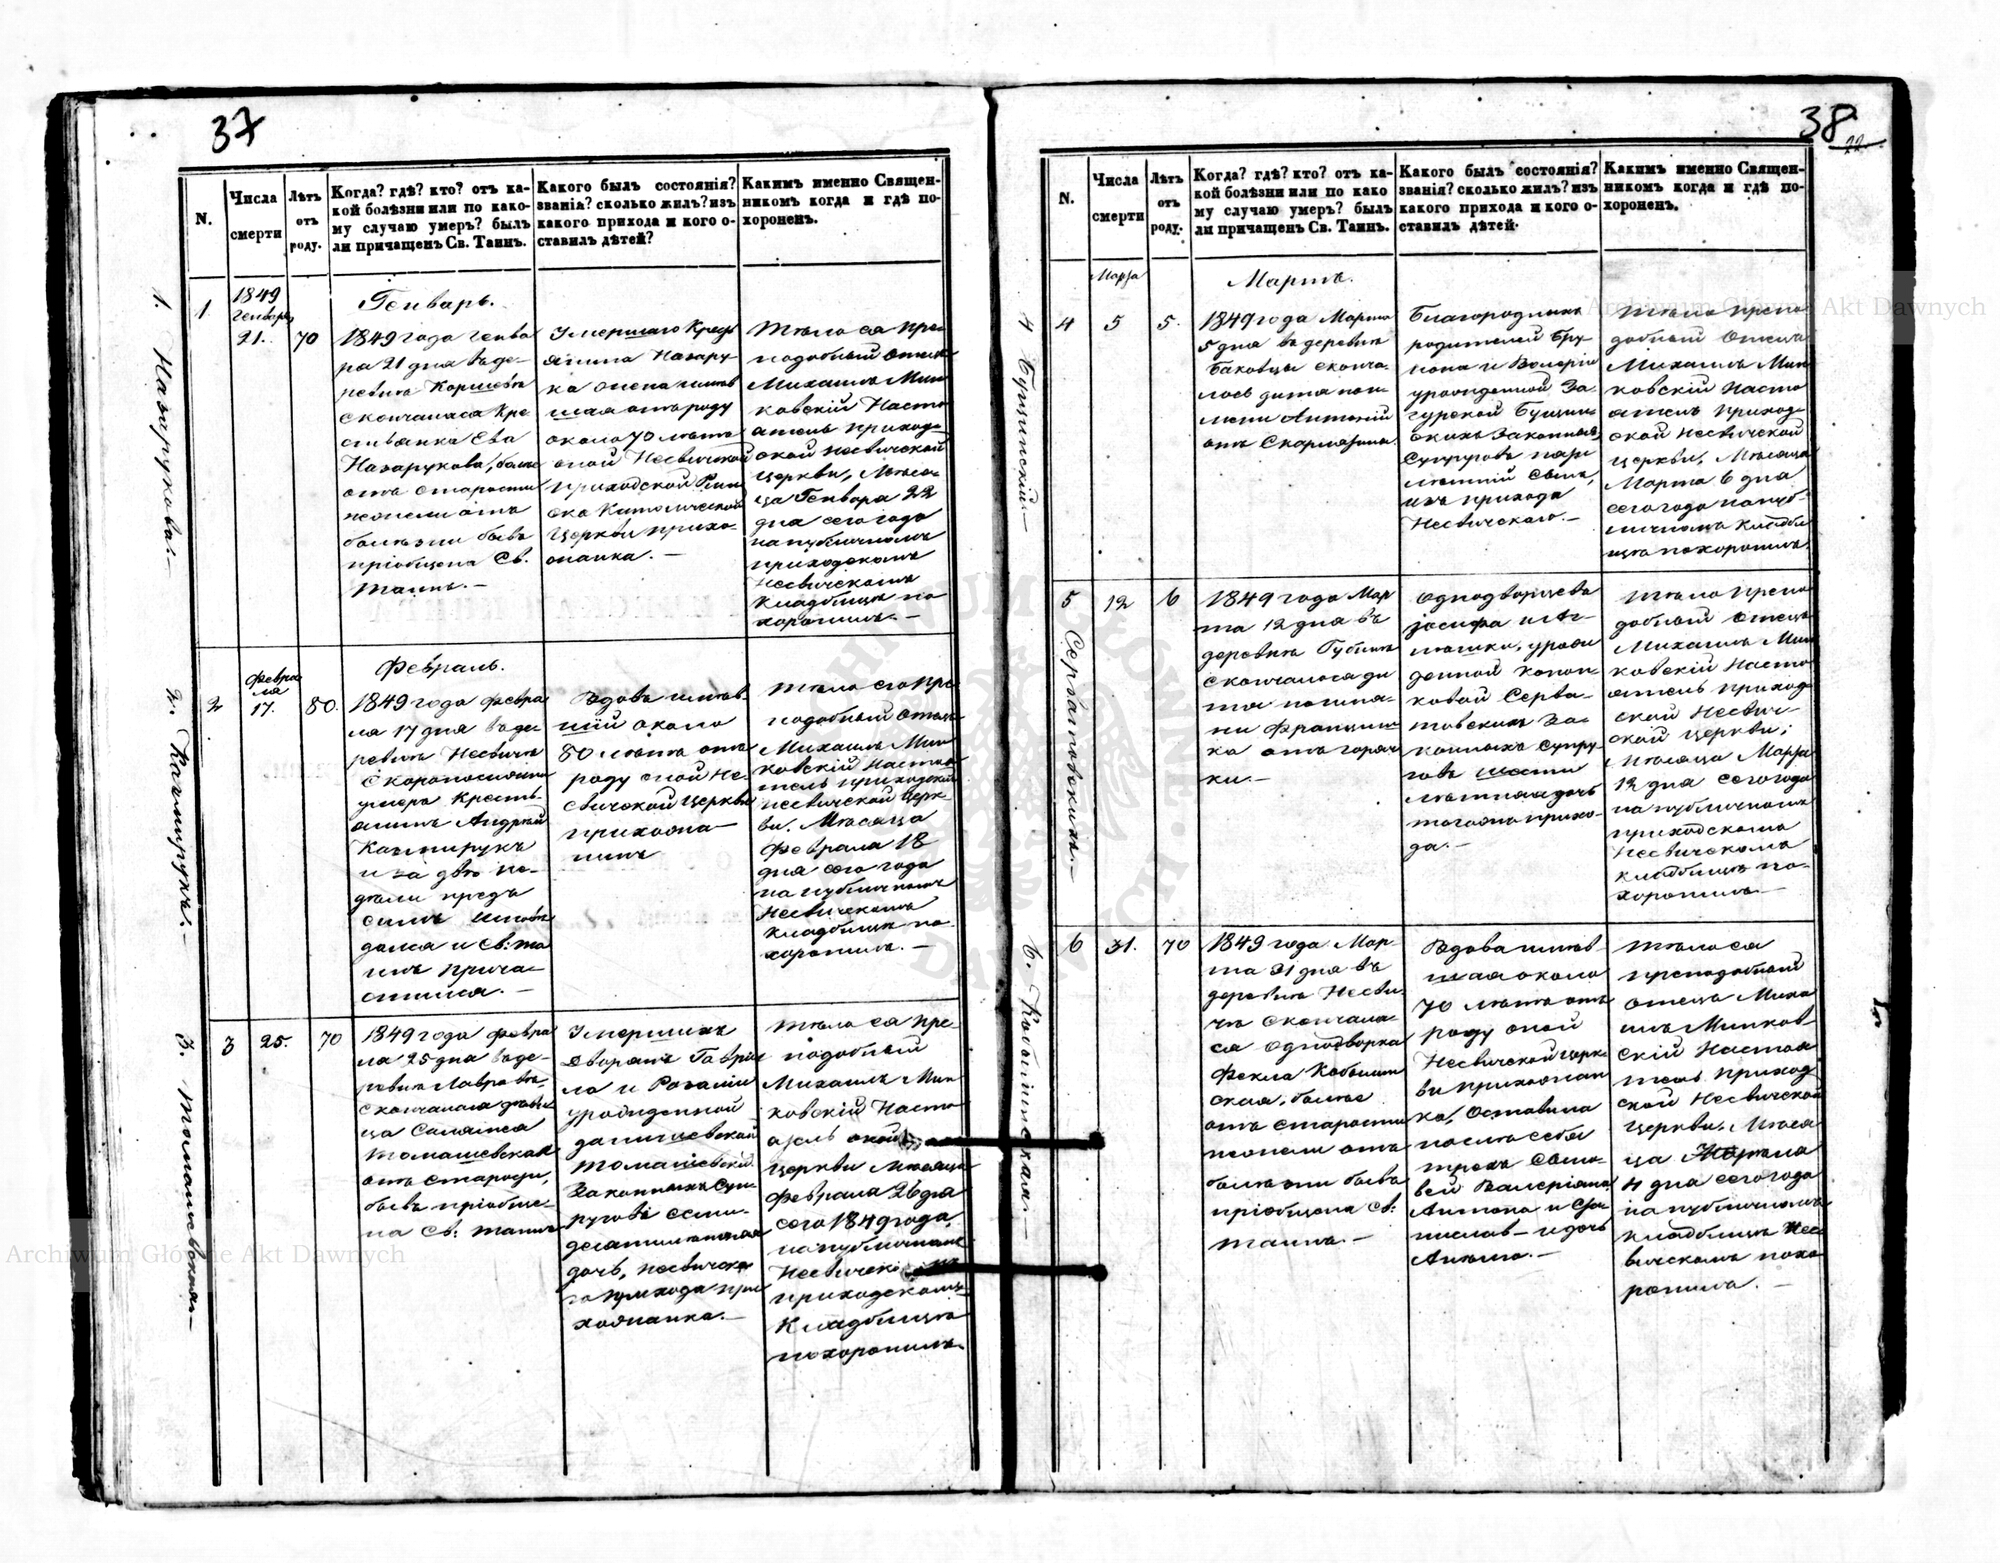 37
N.
Числа
смерти
Лѣтъ
отъ
роду.
Когда? гдѣ? кто? отъ ка-
кой болѣзни или по како-
му случаю умеръ? былъ
ли причащенъ Св. Таинъ.
Какого былъ состоянія?
званія? сколько жилъ? изъ
какого прихода и кого о-
ставилъ дѣтей?
Какимъ именно Священ-
никомъ когда и гдѣ по-
хороненъ.
1. Назарукова.—
1
1849
Генваря
21.
70
Генварь.
1849 года Генва
ра 21 дня въ де-
ревнѣ
скончалася кре
стьянка Ева
Назарукова, болѣе
отъ старости
нежели отъ
болѣзни бывъ
пріобщена Св.
Таинъ.—
Умершаго Кресть
янина Назару-
ка жена имѣв
шая отъ роду
около 70 лѣтъ
оной Несвичской
приходской Рим
ско Католической
Церкви прихо-
жанка.—
Тѣло ея пре-
подобный Отецъ
Михаилъ Мин
ковскій Насто
ятель приход-
ской Несвичской
Церкви, Мѣся-
ца Генвара 22
дня сего года
на публичномъ
приходскомъ
Несвичскомъ
Кладбищѣ по
хоронилъ.—
2. Казмирукъ.—
2
Февра
ля
17.
80.
Февраль.
1849 года Февра
ля 17 дня въ де-
ревнѣ Несвичѣ
скоропостижно
умеръ Кресть-
янинъ Андрей
Казмирукъ
и за двѣ не-
дѣли предъ
симъ
и Св: та
инъ прича-
стился.—
Вдовъ имѣв-
шій около
80 лѣтъ отъ
роду оной Не-
свичской Церкви
прихожа-
нинъ
Тѣло его пре
подобный Отецъ
Михаилъ Мин
ковскій Настоя
тель приходской
Несвичской Церк-
ви. Мѣсяца
Февраля 18
дня сего года
на публичномъ
Несвичскомъ
Кладбищѣ по-
хоронилъ.—
3. Томашевская—
3
25.
70
1849 года Февра
ля 25 дня въ де-
ревнѣ
скончалася дѣви
ца Саломея
Томашевская
отъ старости,
бывъ пріобще-
на Св: таинъ
Умершихъ
Дворянъ Гаврі
ла и Розаліи
урожденной
Томашевскихъ
Законныхъ Суп
руговъ семи-
десятилѣтняя
дочь, Несвичска
го прихода при
хожанка.—
Тѣло ея пре-
подобный
Михаилъ Мин
ковскій Насто
ятель оной
Церкви Мѣсяца
Февраля 26 дня
сего 1849 года,
на публичномъ
Несвичскомъ
приходскомъ
Кладбищѣ
похоронилъ.
38
22
N.
Числа
смерти
Лѣтъ
отъ
роду.
Когда? гдѣ? кто? отъ ка-
кой болѣзни или по како
му случаю умеръ? былъ
ли причащенъ Св. Таинъ.
Какого былъ состоянія?
званія? сколько жилъ? изъ
какого прихода и кого о-
ставилъ дѣтей.
Какимъ именно Священ-
никомъ когда и гдѣ по-
хороненъ.
4 Бущинскій.—
Марта
4
5
5.
Мартъ.
1849 года Марта
5 дня въ деревнѣ
Баковцы сконча-
лось дитя поиме
лени Антоній
отъ Скарлатина
Благородныхъ
родителей Бру
нона и Валеріи
урожденной За
гурской Бущин-
скихъ Законныхъ
Супруговъ пяти
лѣтній сынъ,
изъ прихода
Несвичскаго.—
Тѣло препо-
добный Отецъ
Михаилъ Мин
ковскій Насто
ятель приход-
ской Несвичской
Церкви, Мѣсяца
Марта 6 дня
сего года на пуб-
личномъ кладби
щѣ похоронилъ.
5 Сервантовскихъ.—
5
12
6
1849 года Мар
та 12 дня въ
деревнѣ Губинѣ
скончалось ди
тя поимя-
ни Францишка
отъ горяч
ки.—
Однодворцевъ
Іосифа и
урож
денной
Серва-
товскихъ За-
конныхъ Супру-
говъ шести
лѣтняя дочь
тогожъ прихо-
да.—
Тѣло препо
добный Отецъ
Михаилъ Мин
ковскій Насто
ятель приход
ской Несвич-
ской Церкви,
Мѣсяца Марта
12 дня сего года
на публичномъ
приходскомъ
Несвичскомъ
кладбищѣ по-
хоронилъ.—
6. Кобылинская.—
6
31.
70
1849 года Мар-
та 31 дня въ
деревнѣ Несви-
чѣ скончала-
ся Однодворка
Фекла Кобылин
ская, болѣе
отъ старости
нежели отъ
болѣзни бывъ
пріобщена Св:
таинъ.—
Вдова имѣв-
шая около
70 лѣтъ отъ
роду оной
Несвичской Церк
ви прихожан
ка, Оставила
послѣ себя
трехъ сыно-
вей Валеріана,
Антона и Ста
нислав— и дочь
Анелю.—
Тѣло ея
преподобный
Отецъ Миха
илъ Минков-
скій Настоя
тель приход
ской Несвичской
Церкви. Мѣся
ца
4 дня сего года
на публичномъ
кладбищѣ Нес
вичскомъ похо
ронилъ.—
Archiwum Główne Akt Dawnych
Archiwum Główne Akt Dawnych